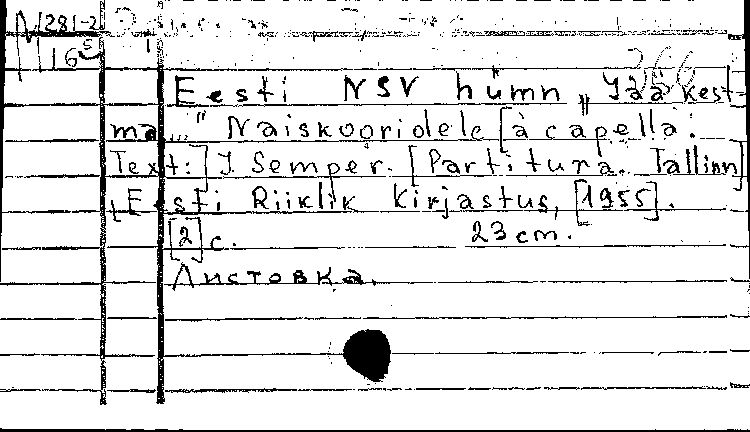 M 281-2
16 5
1
Eesti NSV hümn „Jää kest-
ma..." Naiskooridele [à capella.
Text:] J. Semper. [Partitura. Tallinn]
Eesti Riiklik Kirjastus, [1955].
[2] c. 23 cm.
Листовка.